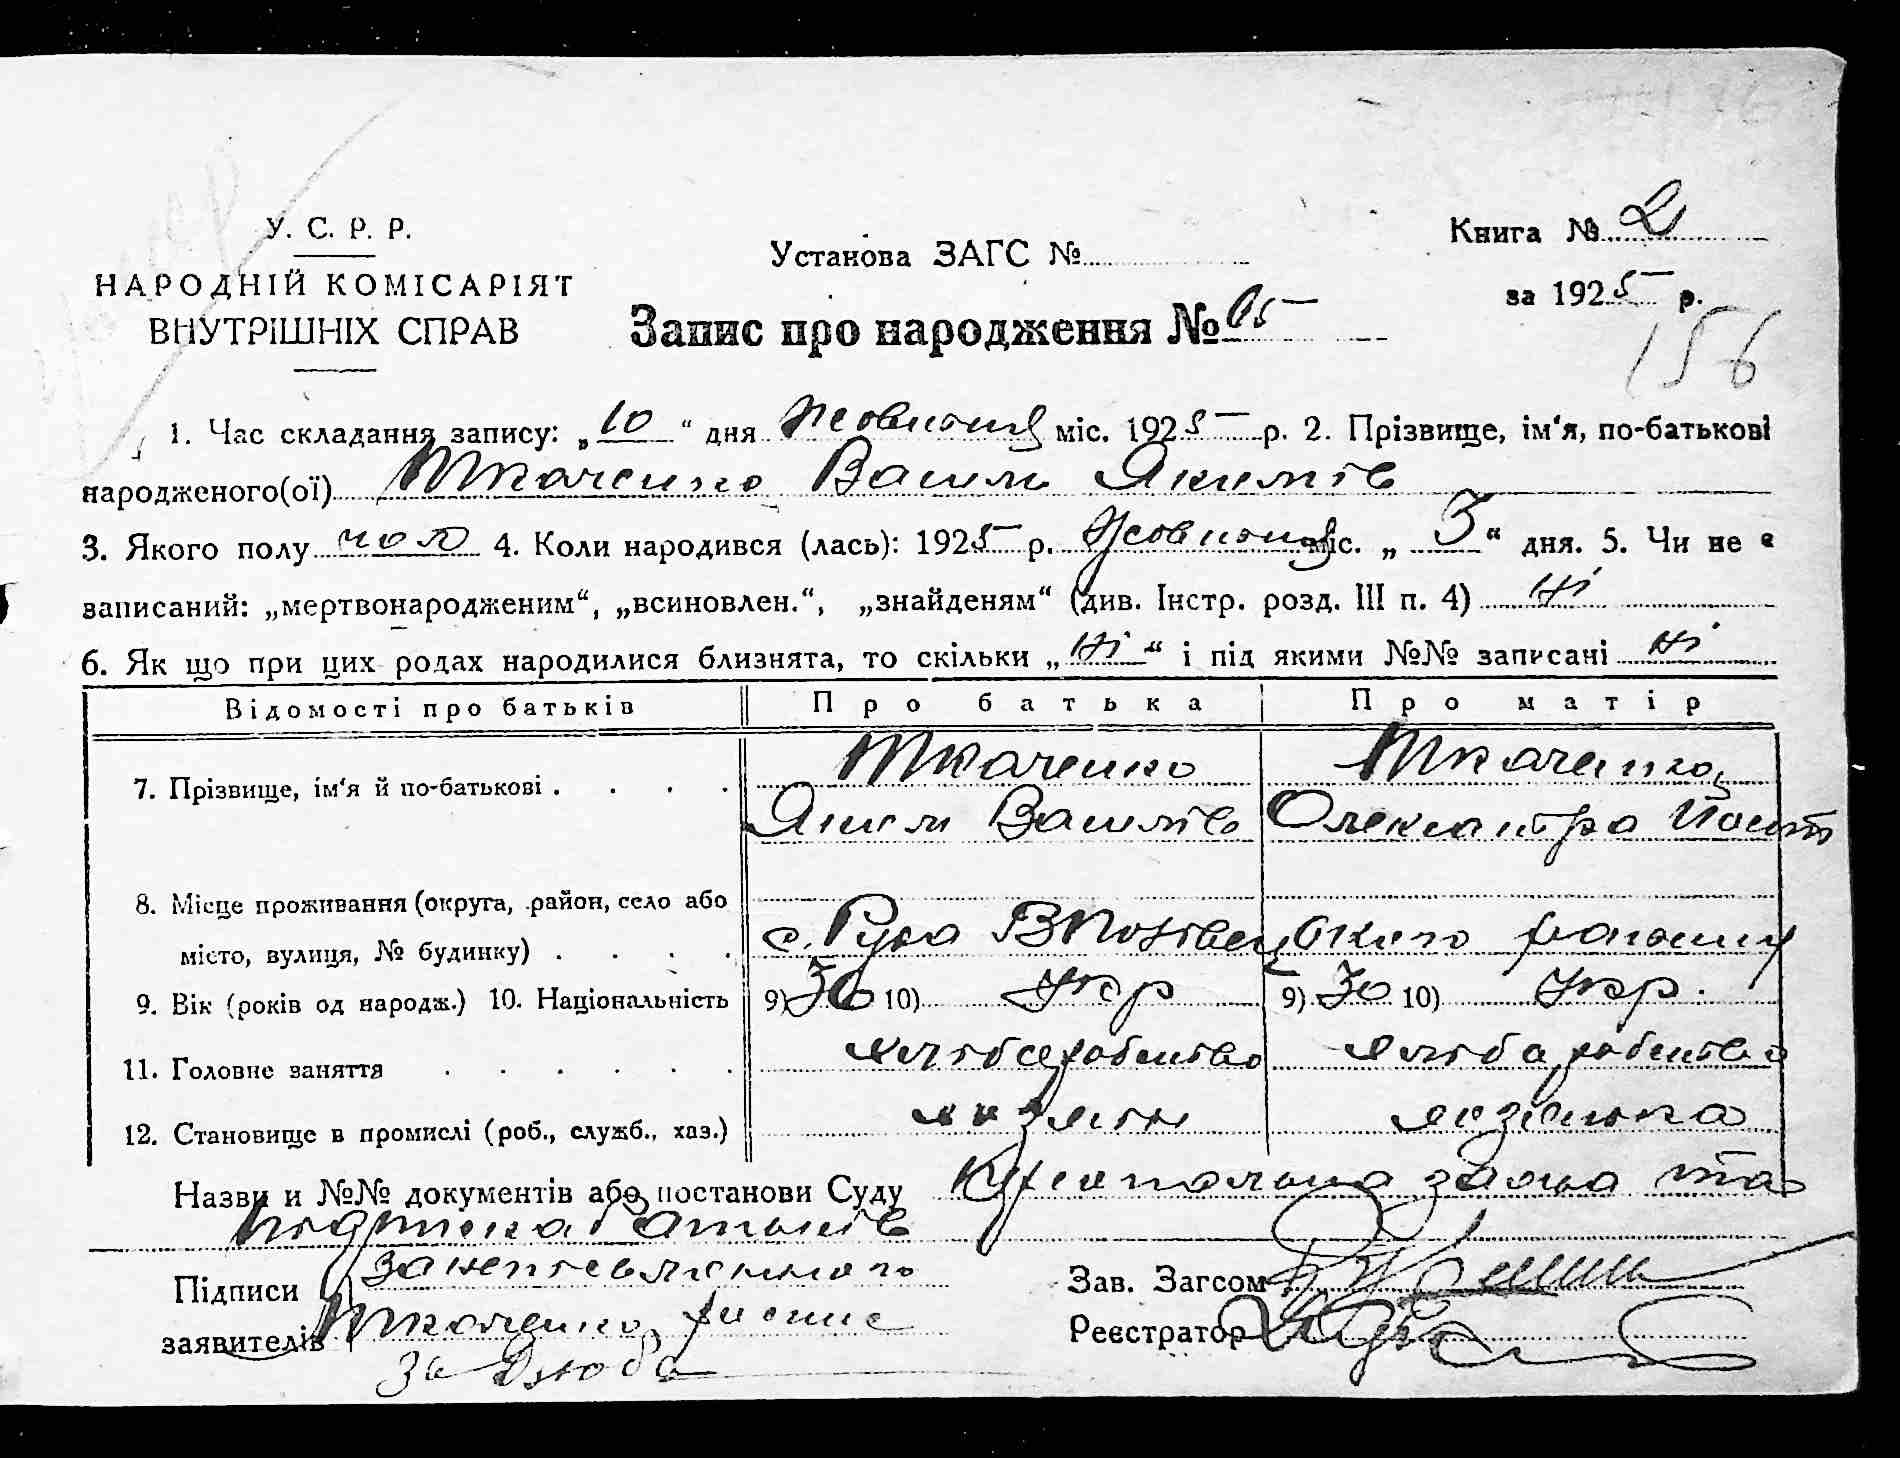 У. С. Р. Р.
НАРОДНІЙ КОМІСАРІЯТ
ВНУТРІШНІХ СПРАВ
Установа ЗАГС №
Книга № 2
за 1925 р.
Запис про народження №
156
1. Час складання запису: „10“ дня Жовтня міс. 1925 р. 2. Прізвище, ім'я, по-батькові
народженого(ої) Ткаченко Василь Якимів
3. Якого полу чол 4. Коли народився (лась): 1925 р. Жовтня міс. „3“ дня. 5. Чи не є
записаний: „мертвонародженим“, „всиновлен.“, „знайденям“ (див. Інстр. розд. III п. 4) Ні
6. Як що при цих родах народилися близнята, то скільки „Ні“ і під якими №№ записані Ні
Відомості про батьків Про батька Про матір
7. Прізвище, ім'я й по-батькові Ткаченко Ткаченко
Яким Василів Олександра
8. Місце проживання (округа, район, село або
місто, вулиця, № будинку) с. Руда району
9. Вік (років од народж.) 10. Національність 9) 30 10) Укр 9) 30 10) Укр.
11. Головне заняття хліборобство хліборобство
12. Становище в промислі (роб., служб., хаз.) хазяїн хазяйка
Назви и №№ документів або постанови Суду заява та
підписка батьків
Підписи За неписьменного
заявителів Ткаченко
За Дзюба
Зав. Загсом
Реєстратор